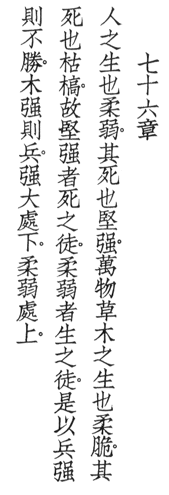 七十六章
人之生也柔弱。其死也堅强。萬物草木之生也柔脆。其
死也枯槁。故堅强者死之徒。柔弱者生之徒。是以兵强
則不勝。木强則兵。强大處下。柔弱處上。